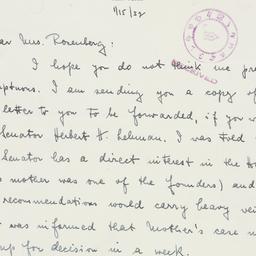 1/15/52
ear Mrs. Rosenberg:
I hope you do not think me pre
mptuous. I am sending you a copy of
letter to you to be forwarded, if you w
Senator Herbert H. Lehman. I was told
Senator has a direct interest in the Ho
s mother was one of the founders) and
recommendations would carry heavy wei
was informed that Mother's case w
up for decision in a week.
RECEIVED